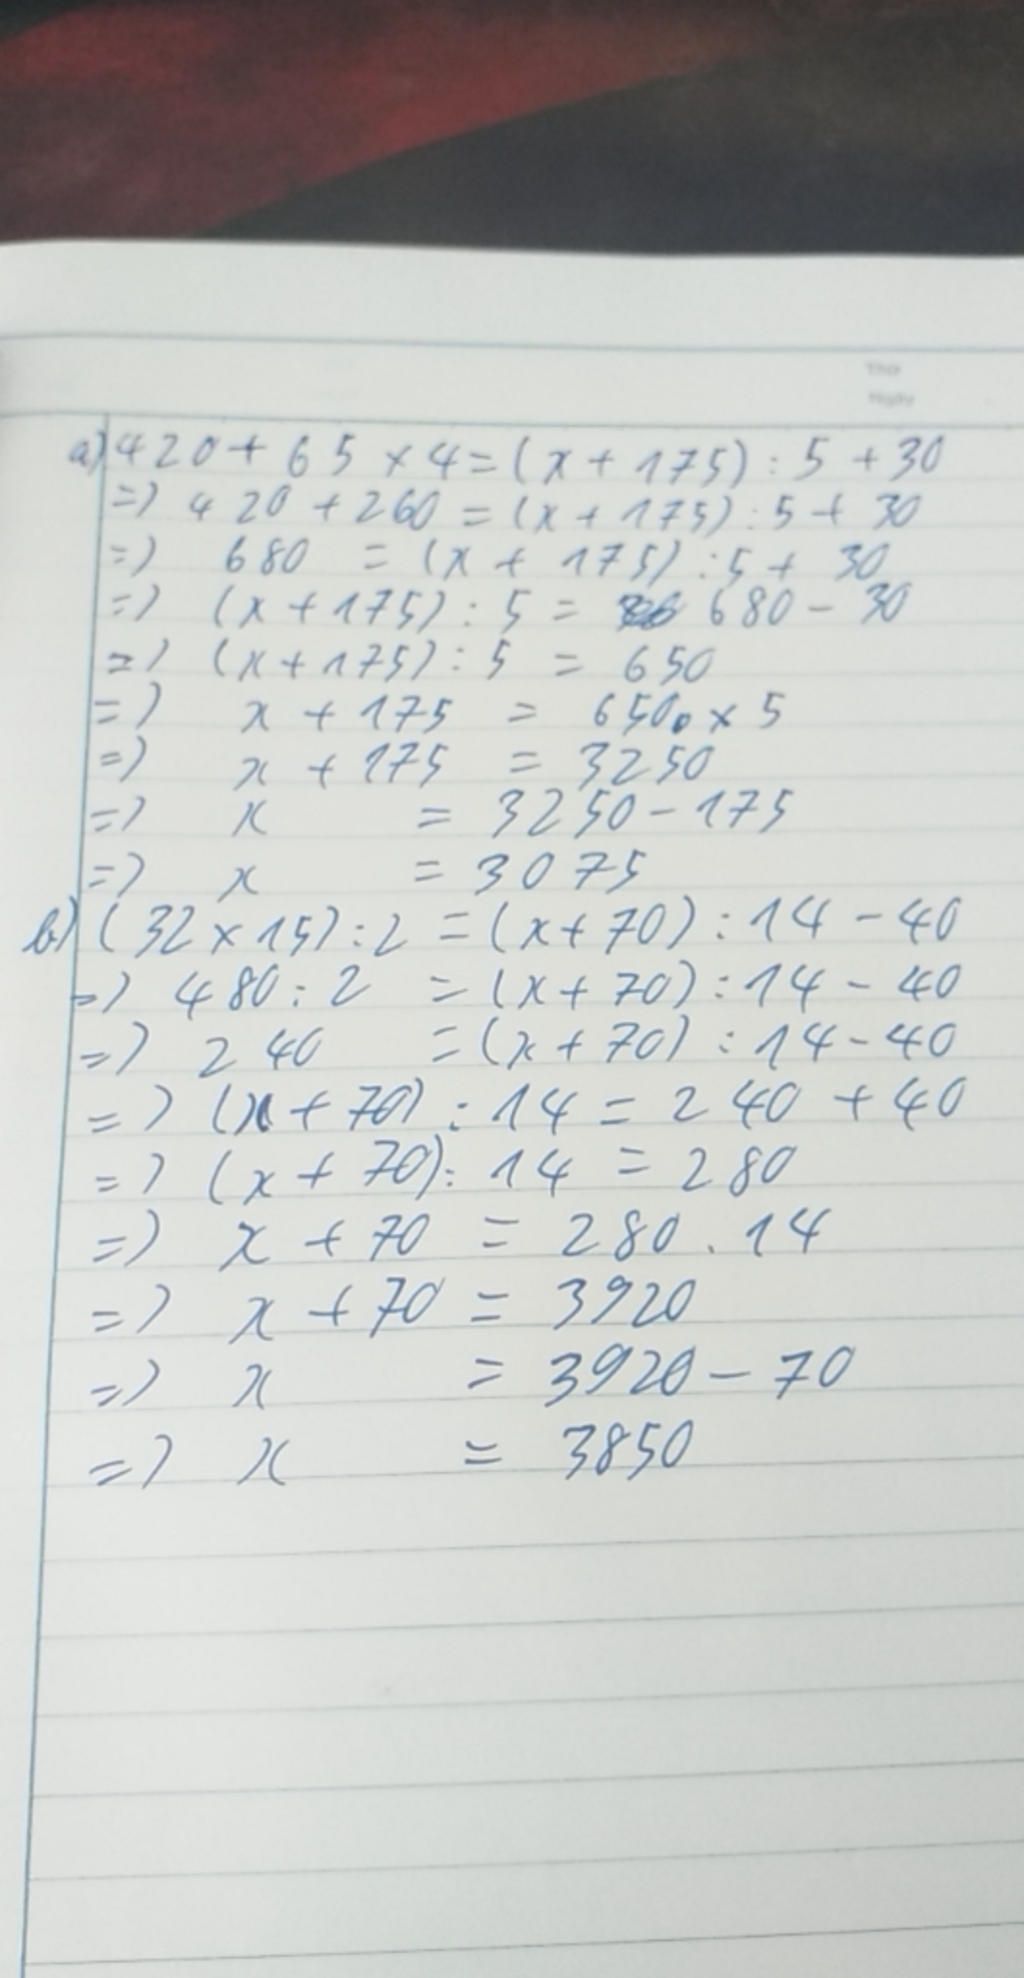 Thứ
Ngày
a) 420 + 65 × 4 = (x + 175) : 5 + 30
=> 420 + 260 = (x + 175) : 5 + 30
=> 680 = (x + 175) : 5 + 30
=> (x + 175) : 5 = 680 - 30
=> (x + 175) : 5 = 650
=> x + 175 = 650 × 5
=> x + 175 = 3250
=> x = 3250 - 175
=> x = 3075
b) (32 × 15) : 2 = (x + 70) : 14 - 40
=> 480 : 2 = (x + 70) : 14 - 40
=> 240 = (x + 70) : 14 - 40
=> (x + 70) : 14 = 240 + 40
=> (x + 70) : 14 = 280
=> x + 70 = 280 . 14
=> x + 70 = 3920
=> x = 3920 - 70
=> x = 3850